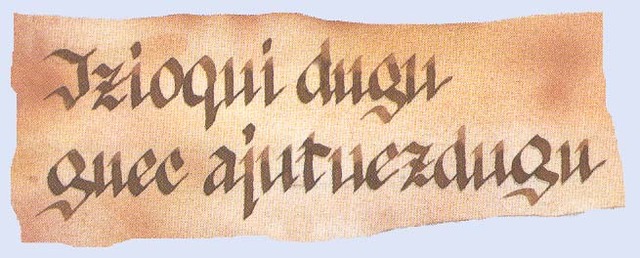 Izioqui dugu
guec ajutuezdugu